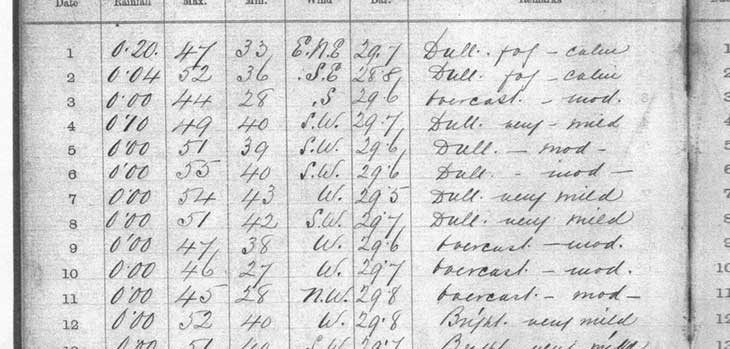 Date Rainfall Max. Min. Wind Bar. Remarks
1 0.20. 47 33 E.N.E 29.7 Dull. fog - calm
2 0.04 52 36 .S.E 28.8 Dull. fog - calm
3 0.00 44 28 .S 29.6 overcast. - mod.
4 0.10 49 40 S.W. 29.7 Dull. very - mild
5 0.00 51 39 S.W. 29.6 Dull. - mod -
6 0.00 55 40 S.W. 29.6 Dull - mod -
7 0.00 54 43 W. 29.5 Dull very mild
8 0.00 51 42 S.W. 29.7 Dull. very mild
9 0.00 47 38 W. 29.6 overcast - mod.
10 0.00 46 27 W. 29.7 overcast. - mod.
11 0.00 45 28 N.W. 29.8 overcast. - mod -
12 0.00 52 40 W. 29.8 Bright. very mild